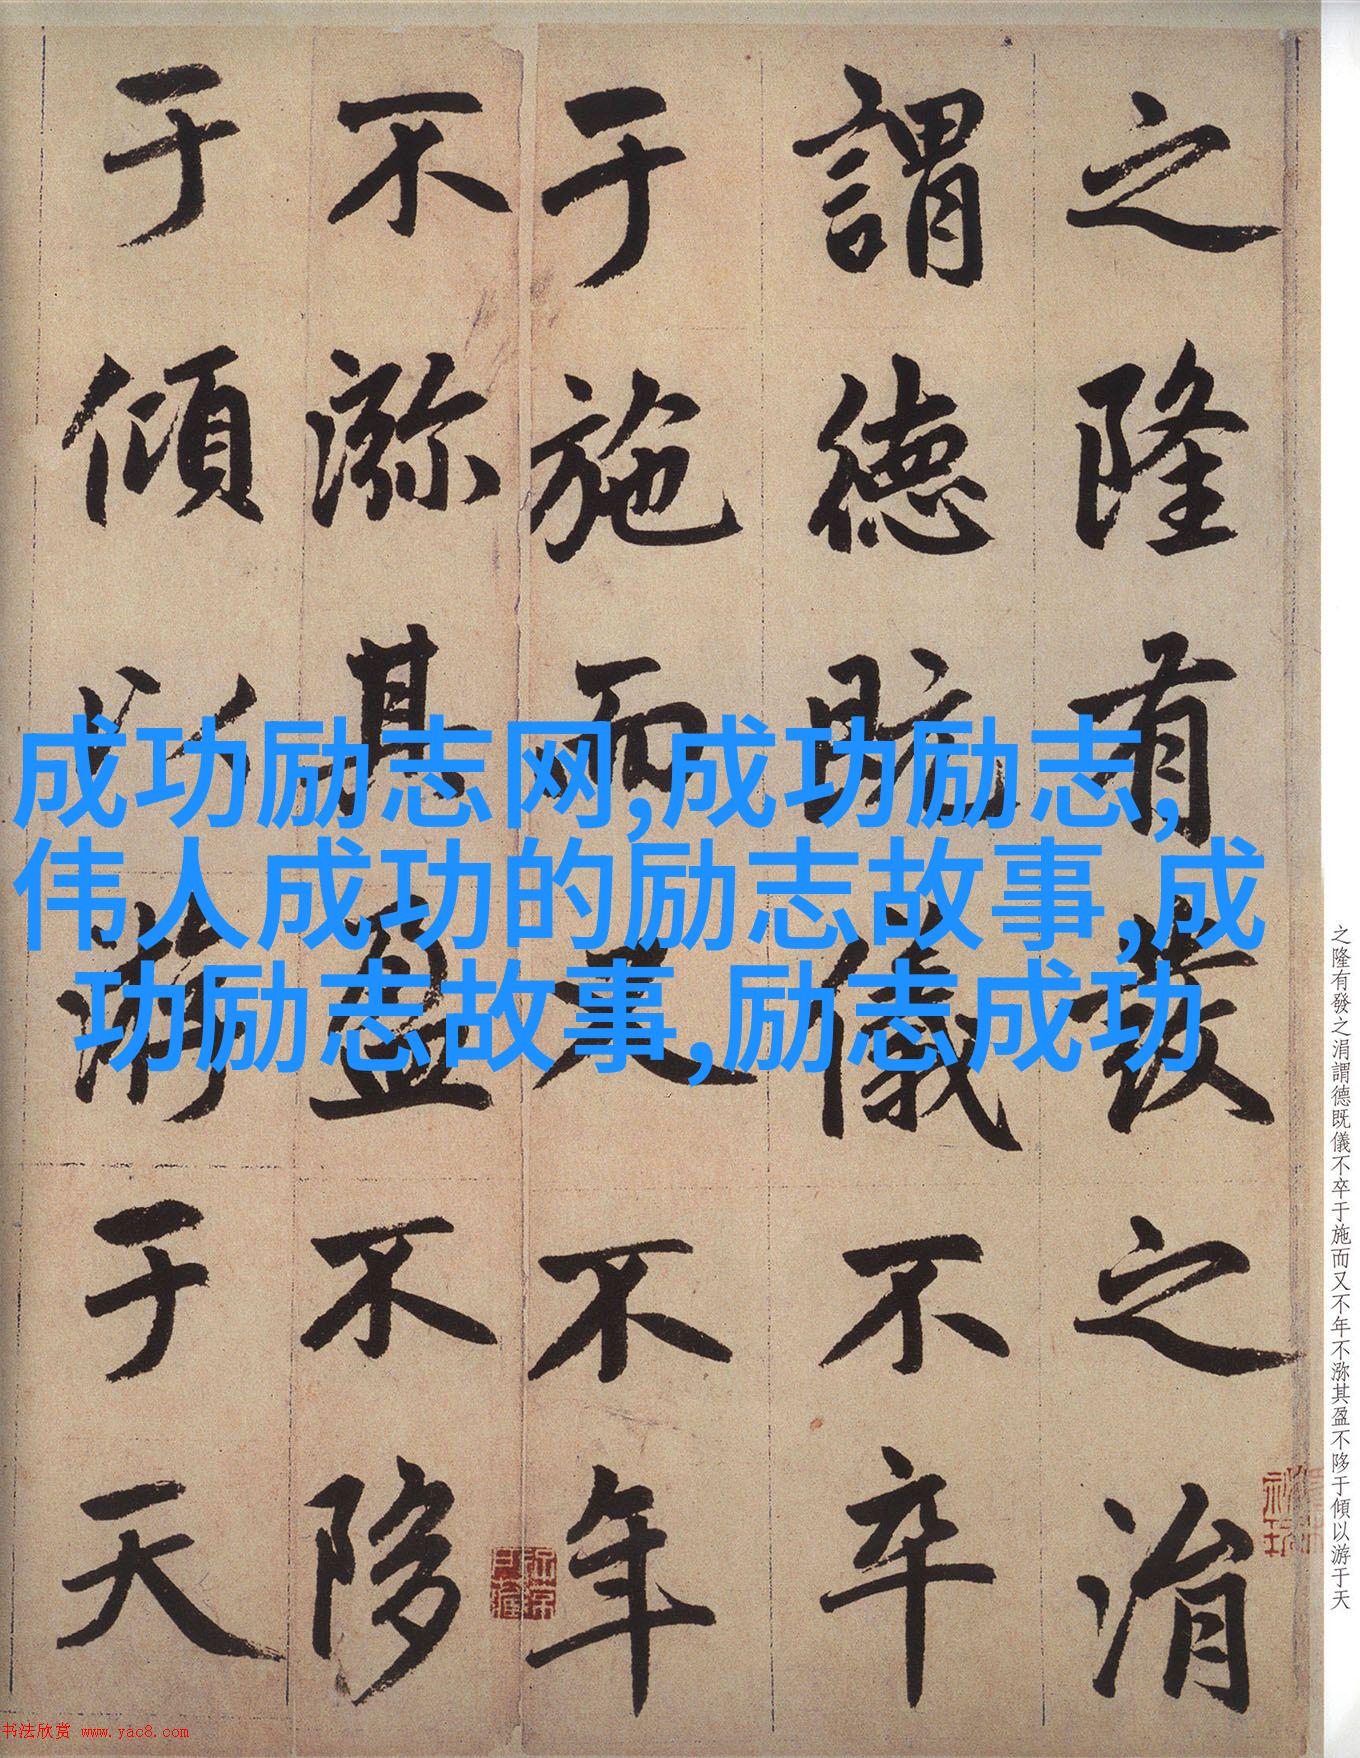 之隆有發之涓
謂德既儀不卒
于施而又不年
不㳽其盈不陊
于傾以游于天
成功励志网,成功励志,
伟人成功的励志故事,成
功励志故事,励志成功
之隆有發之涓謂德既儀不卒于施而又不年不㳽其盈不陊于傾以游于天
书法欣赏 www.yac8.com